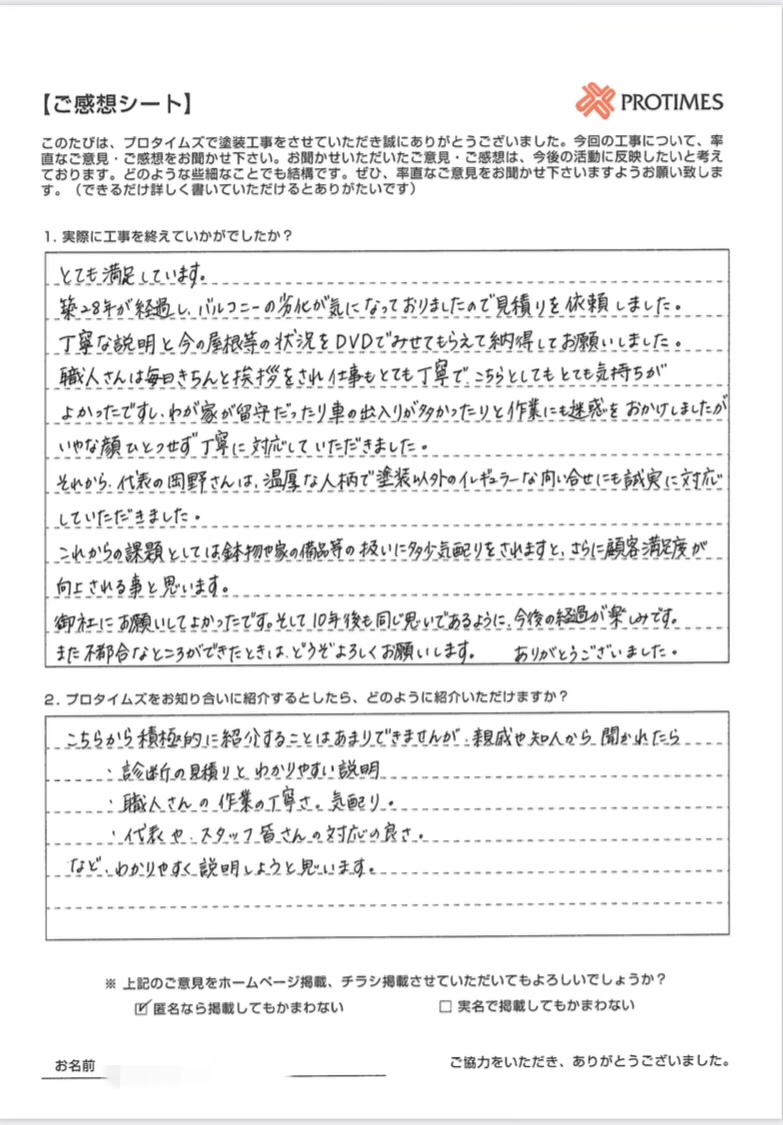 【ご感想シート】
PROTIMES
このたびは、プロタイムズで塗装工事をさせていただき誠にありがとうございました。今回の工事について、率
直なご意見・ご感想をお聞かせ下さい。お聞かせいただいたご意見・ご感想は、今後の活動に反映したいと考え
ております。どのような些細なことでも結構です。ぜひ、率直なご意見をお聞かせ下さいますようお願い致しま
す。（できるだけ詳しく書いていただけるとありがたいです）
1. 実際に工事を終えていかがでしたか？
とても満足しています。
築28年が経過し、バルコニーの劣化が気になっておりましたので見積りを依頼しました。
丁寧な説明と今の屋根等の状況をDVDでみせてもらえて納得してお願いしました。
職人さんは毎日きちんと挨拶をされ仕事もとても丁寧で、こちらとしてもとても気持ちが
よかったですし、わが家が留守だったり車の出入りが多かったりと作業にも迷惑をおかけしましたが
いやな顔ひとつせず丁寧に対応していただきました。
それから、代表の岡野さんは、温厚な人柄で塗装以外のイレギュラーな向い合せにも誠実に対応
していただきました。
これからの課題としては鉢物や家の備品等の扱いに多少気配りをされますと、さらに顧客満足度が
向上される事と思います。
御社にお願いしてよかったです。そして10年後も同じ思いであるように、今後の経過が楽しみです。
また不都合なところができたときは、どうぞよろしくお願いします。 ありがとうございました。
2. プロタイムズをお知り合いに紹介するとしたら、どのように紹介いただけますか？
こちらから積極的に紹介することはあまりできませんが、親戚や知人から聞かれたら
・診断の見積りとわかりやすい説明
・職人さんの作業の丁寧さ。気配り。
・代表や、スタッフ皆さんの対応の良さ。
など、わかりやすく説明しようと思います。
※ 上記のご意見をホームページ掲載、チラシ掲載させていただいてもよろしいでしょうか？
☑ 匿名なら掲載してもかまわない □ 実名で掲載してもかまわない
お名前 ご協力をいただき、ありがとうございました。